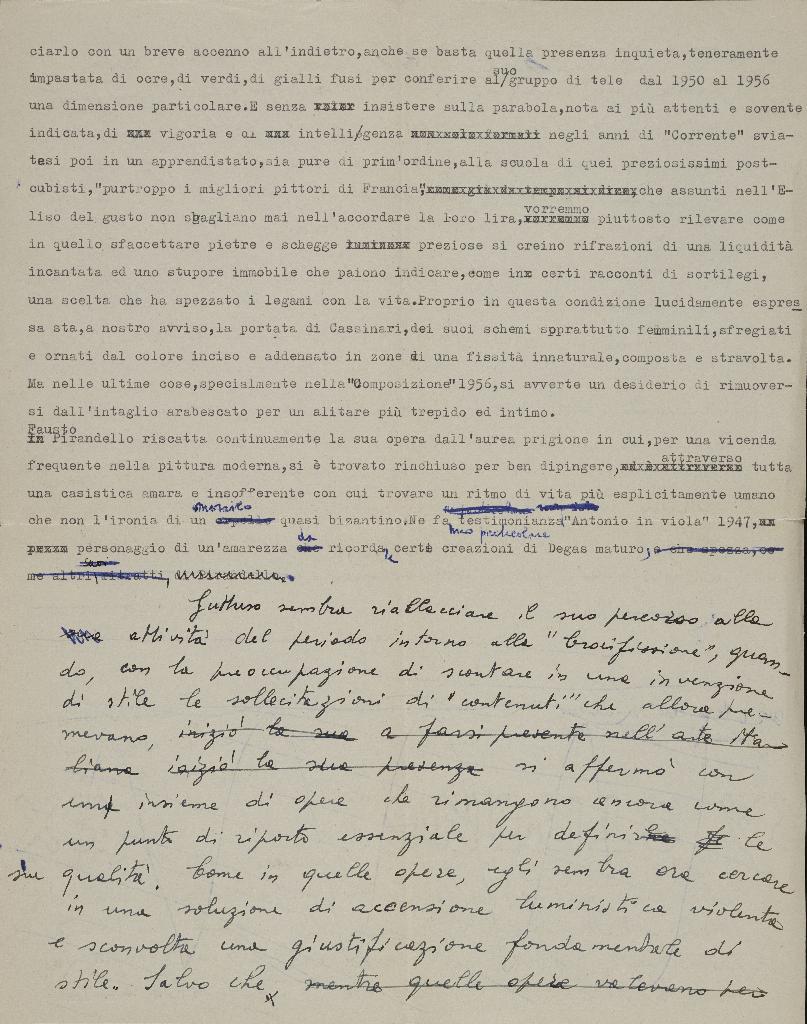 ciarlo con un breve accenno all'indietro,anche se basta quella presenza inquieta,teneramente
impastata di ocre,di verdi,di gialli fusi per conferire al/suo gruppo di tele dal 1950 al 1956
una dimensione particolare.E senza insistere sulla parabola,nota ai più attenti e sovente
indicata,di vigoria e di intelli/genza negli anni di "Corrente" svia-
tesi poi in un apprendistato,sia pure di prim'ordine,alla scuola di quei preziosissimi post-
cubisti,"purtroppo i migliori pittori di Francia", che assunti nell'E-
liso del gusto non sbagliano mai nell'accordare la loro lira, vorremmo piuttosto rilevare come
in quello sfaccettare pietre e schegge preziose si creino rifrazioni di una liquidità
incantata ed uno stupore immobile che paiono indicare,come in certi racconti di sortilegi,
una scelta che ha spezzato i legami con la vita.Proprio in questa condizione lucidamente espres
sa sta,a nostro avviso,la portata di Cassinari,dei suoi schemi soprattutto femminili,sfregiati
e ornati dal colore inciso e addensato in zone di una fissità innaturale,composta e stravolta.
Ma nelle ultime cose,specialmente nella"Composizione"1956,si avverte un desiderio di rimuover-
si dall'intaglio arabescato per un alitare più trepido ed intimo.
Fausto Pirandello riscatta continuamente la sua opera dall'aurea prigione in cui,per una vicenda
frequente nella pittura moderna,si è trovato rinchiuso per ben dipingere, attraverso tutta
una casistica amara e insofferente con cui trovare un ritmo di vita più esplicitamente umano
che non l'ironia di un mosaico quasi bizantino.Ne fa testimonianza"Antonio in viola" 1947,
personaggio di un'amarezza da ricordare certe creazioni di Degas maturo;
me altri suoi ritratti, di Pirandello.
Guttuso sembra riallacciare il suo percorso alla
attività del periodo intorno alla "Crocifissione", quan-
do, con la preoccupazione di scontare in una invenzione
di stile le sollecitazioni di "contenuti" che allora pre-
mevano, iniziò la sua a farsi presente nell'arte ita
liana iniziò la sua presenza si affermò con
un insieme di opere che rimangono ancora come
un punto di riporto essenziale per definire le
sue qualità. Come in quelle opere, egli sembra ora cercare
in una soluzione di accensione luministica violenta
e sconvolta una giustificazione fondamentale di
stile. Salvo che mentre quelle opere valevano per